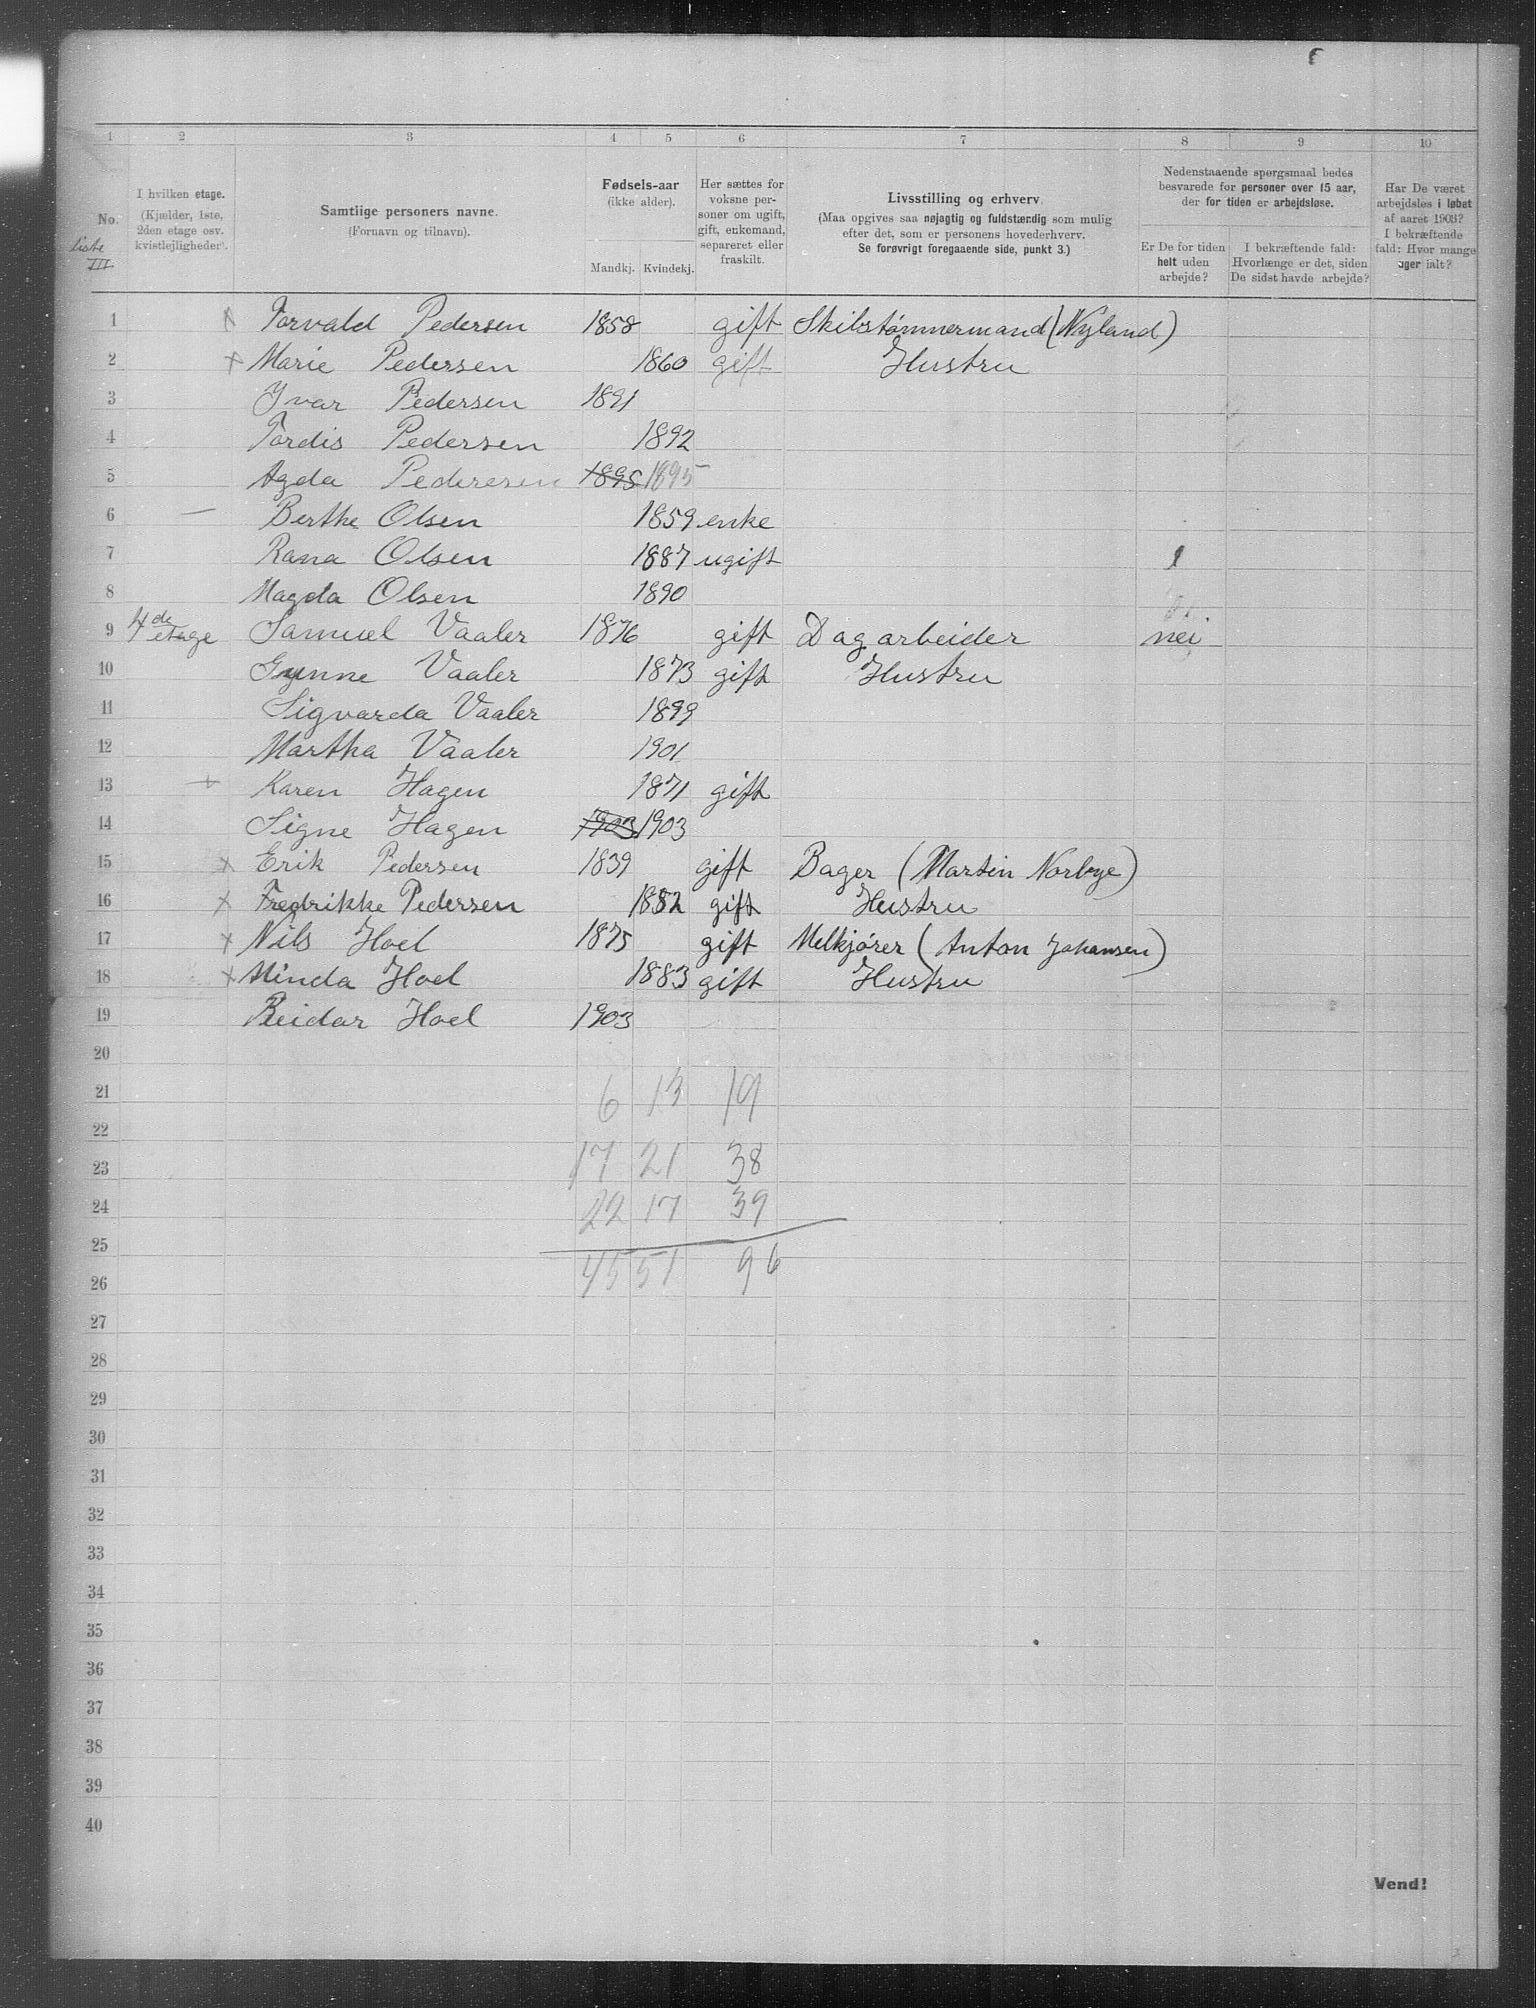 1 2 3 4 5 6 7 8 9 10
No.
liste
III
I hvilken etage.
(Kjælder, 1ste,
2den etage osv.
kvistleiligheder).
Samtlige personers navne.
(Fornavn og tilnavn).
Fødsels-aar
(ikke alder).
Mandkj. Kvindekj.
Her sættes for
voksne per-
soner om ugift,
gift, enkemand,
separeret eller
fraskilt.
Livsstilling og erhverv.
(Maa opgives saa nøjagtig og fuldstændig som mulig
efter det, som er personens hovederhverv.
Se forøvrigt foregaaende side, punkt 3.)
Nedenstaaende spørgsmaal bedes
besvarede for personer over 15 aar,
der for tiden er arbejdsløse.
Er De for tiden
helt uden
arbejde?
I bekræftende fald:
Hvorlænge er det, siden
De sidst havde arbejde?
Har De været
arbejdsløs i løbet
af aaret 1903?
I bekræftende
fald: Hvor mange
uger ialt?
1 x Torvald Pedersen 1858 gift Skibstømmermand (Nyland)
2 x Marie Pedersen 1860 gift Hustru
3 Yvar Pedersen 1891
4 Tordis Pedersen 1892
5 Agda Pederesen 1895 1895
6 — Berthe Olsen 1859 enke
7 Rana Olsen 1887 ugift 1
8 Magda Olsen 1890
9 4de etage Samuel Vaaler 1876 gift Dagarbeider nei
10 Gynne Vaaler 1873 gift Hustru
11 Sigvarda Vaaler 1899
12 Martha Vaaler 1901
13 + Karen Hagen 1871 gift
14 Signe Hagen 1903 1903
15 x Erik Pedersen 1839 gift Bager (Martin Norbye)
16 x Fredrikke Pedersen 1882 gift Hustru
17 x Nils Hoel 1875 gift Melkjører (Anton Johansen)
18 x Minda Hoel 1883 gift Hustru
19 Reidar Hoel 1903
20
21 6 13 19
22
23 17 21 38
24 22 17 39
25
26 45 51 96
27
28
29
30
31
32
33
34
35
36
37
38
39
40
Vend!